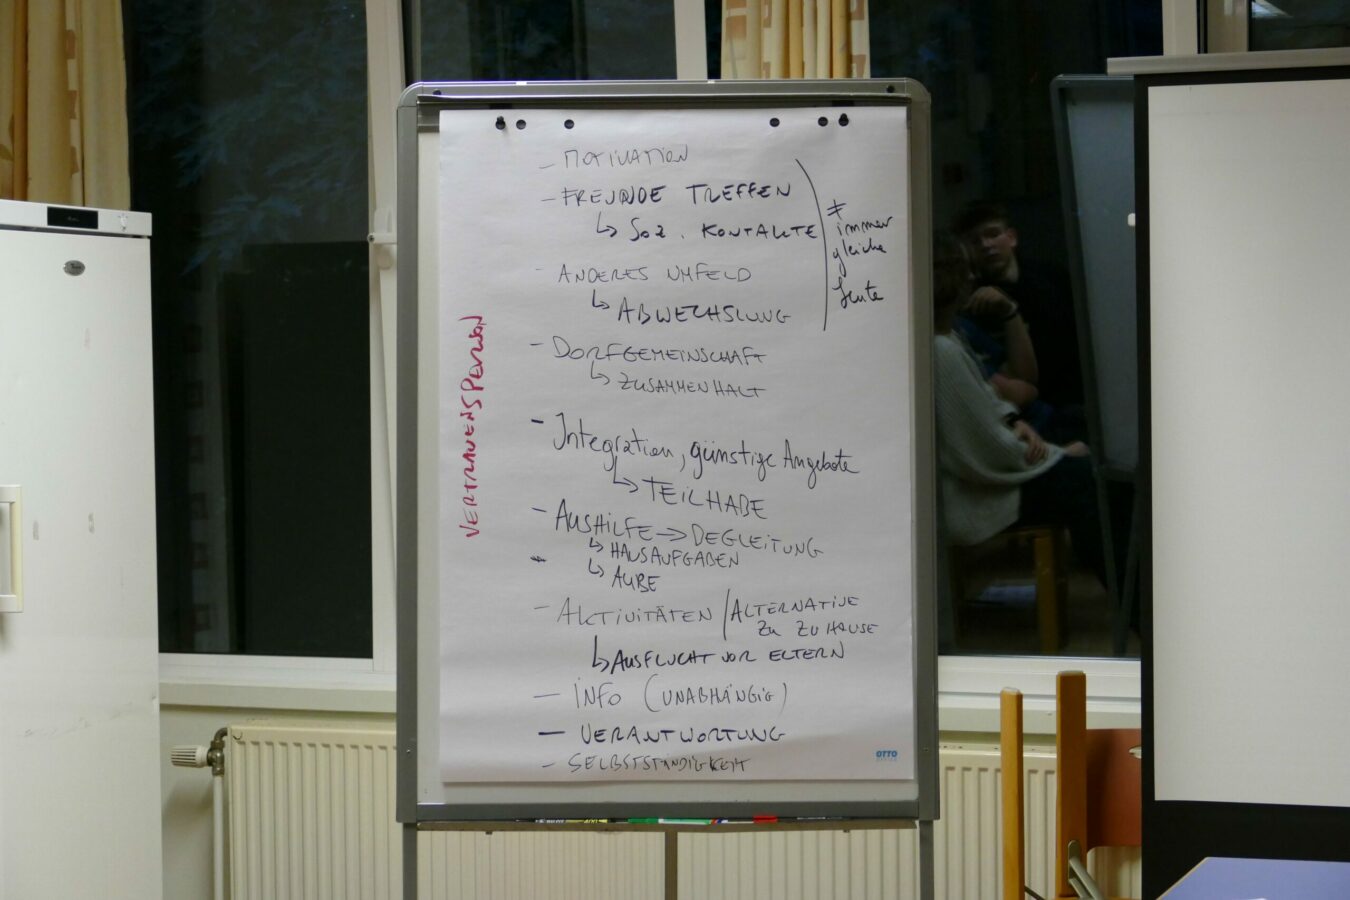 - MOTIVATION
- FREUNDE TREFFEN
↳ SOZ. KONTAKTE
≠ immer
gleiche
Leute
- ANDERES UMFELD
↳ ABWECHSLUNG
- DORFGEMEINSCHAFT
↳ ZUSAMMENHALT
VERTRAUENSPERSON
- Integration, günstige Angebote
↳ TEILHABE
- AUSHILFE → BEGLEITUNG
↳ HAUSAUFGABEN
-
↳ AUBE
- AKTIVITÄTEN / ALTERNATIVE
ZU ZUHAUSE
↳ AUSFLUCHT VOR ELTERN
- INFO (UNABHÄNGIG)
- VERANTWORTUNG
- SELBSTSTÄNDIGKEIT
OTTO